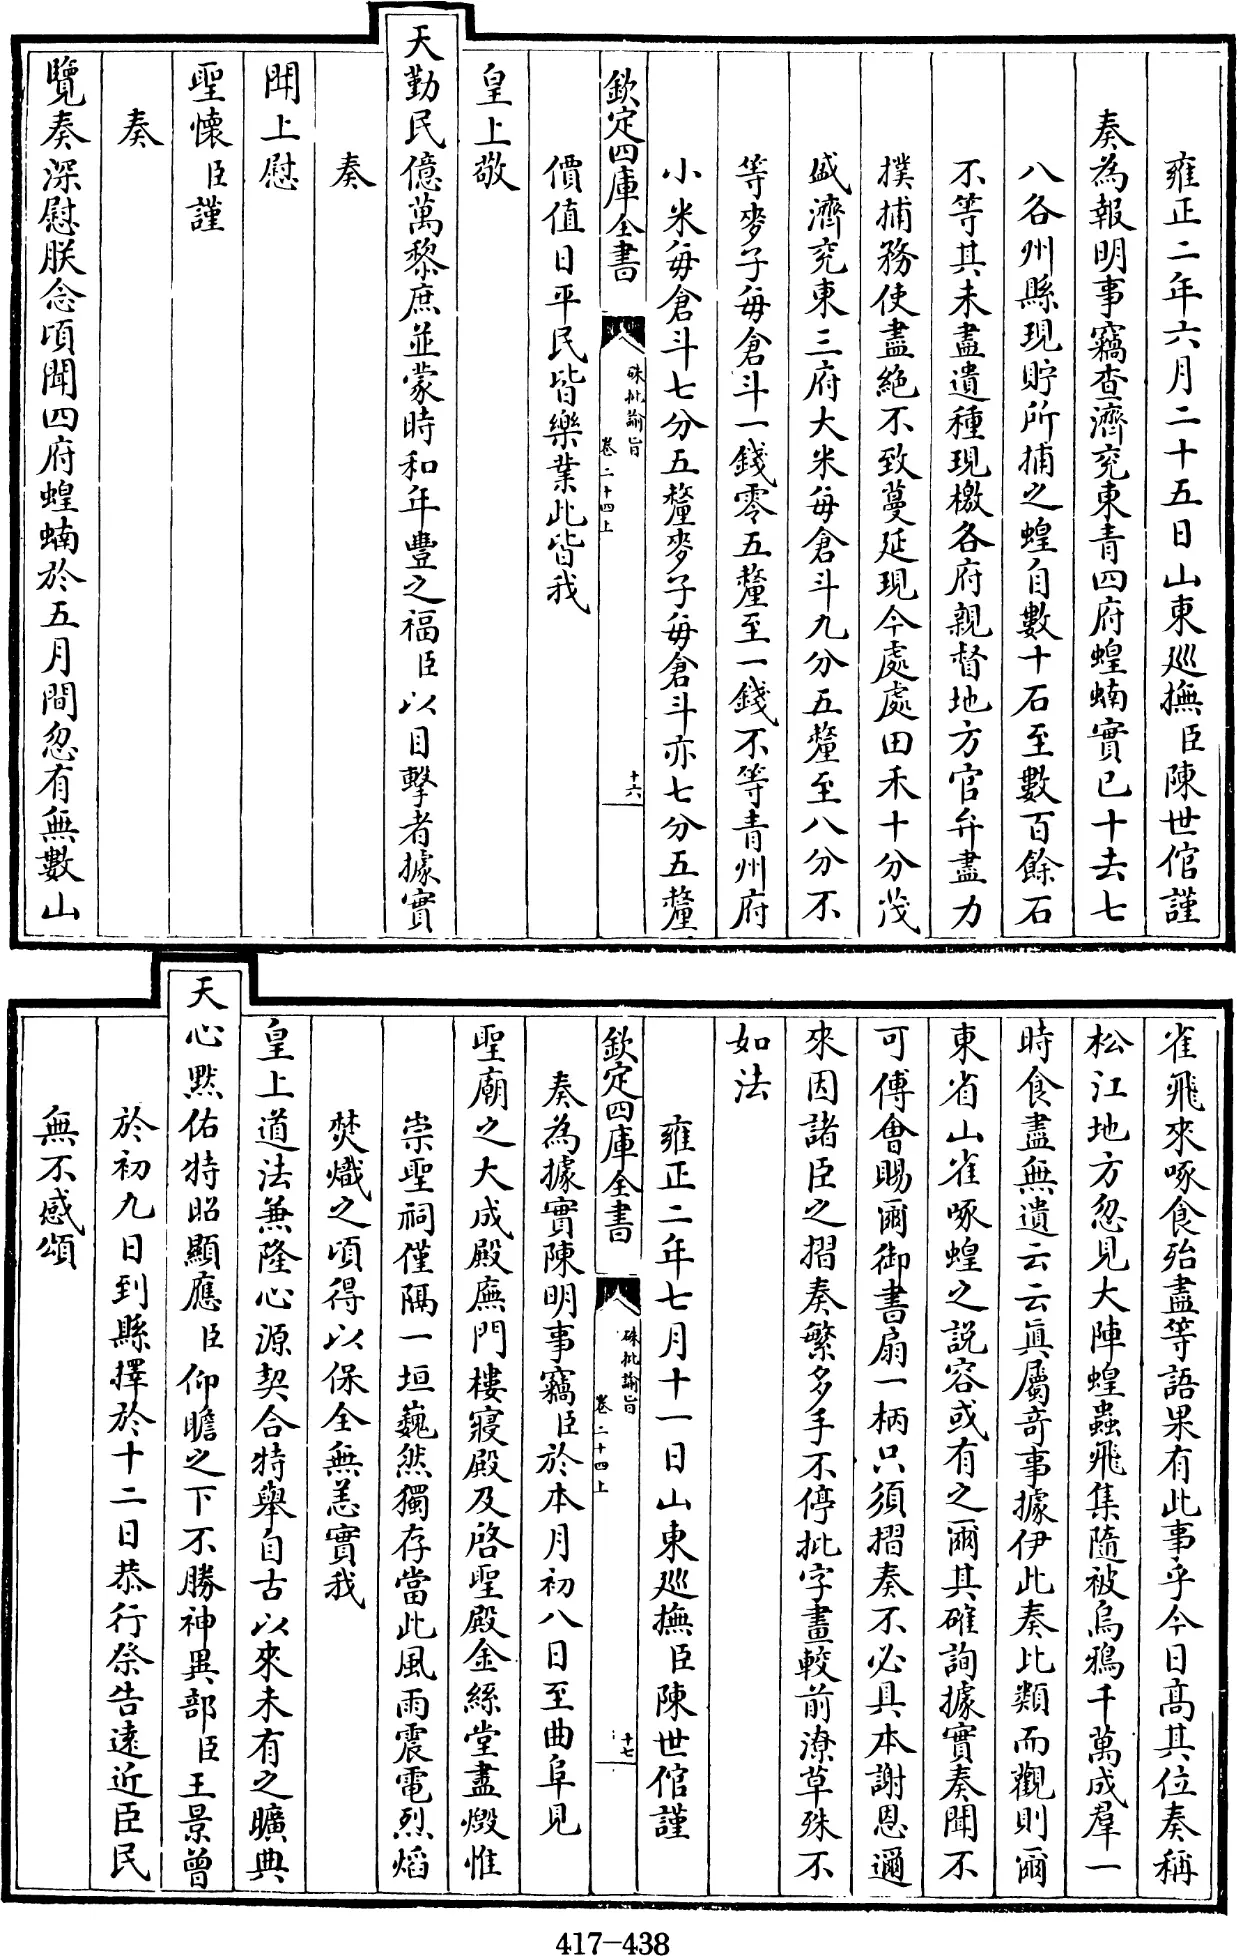 雍正二年六月二十五日山東巡撫臣陳世倌謹
奏為報明事竊查濟兖東青四府蝗蝻實已十去七
八各州縣現貯所捕之蝗自數十石至數百餘石
不等其未盡遺種現檄各府親督地方官弁盡力
撲捕務使盡絶不致蔓延現今處處田禾十分茂
盛濟兖東三府大米每倉斗九分五釐至八分不
等麥子每倉斗一錢零五釐至一錢不等青州府
小米每倉斗七分五釐麥子每倉斗亦七分五釐
欽定四庫全書
硃批諭旨
卷二十四上
十六
價值日平民皆樂業此皆我
皇上敬
天勤民億萬黎庶並蒙時和年豐之福臣以目擊者據實
奏
聞上慰
聖懷臣謹
奏
覽奏深慰朕念頃聞四府蝗蝻於五月間忽有無數山
雀飛來啄食殆盡等語果有此事乎今日髙其位奏稱
松江地方忽見大陣蝗蟲飛集隨被烏鴉千萬成羣一
時食盡無遺云云眞屬竒事據伊此奏比類而觀則爾
東省山雀啄蝗之説容或有之爾其確詢據實奏聞不
可傅會賜爾御書扇一柄只須摺奏不必具本謝恩邇
來因諸臣之摺奏繁多手不停批字畫較前潦草殊不
如法
雍正二年七月十一日山東巡撫臣陳世倌謹
奏為據實陳明事竊臣於本月初八日至曲阜見
欽定四庫全書
硃批諭旨
卷二十四上
十七
聖廟之大成殿廡門樓寢殿及啓聖殿金絲堂盡燬惟
崇聖祠僅隔一垣巍然獨存當此風雨震電烈熖
焚熾之頃得以保全無恙實我
皇上道法兼隆心源契合特舉自古以來未有之曠典
天心黙佑特昭顯應臣仰瞻之下不勝神異部臣王景曾
於初九日到縣擇於十二日恭行祭告遠近臣民
無不感頌
417-438